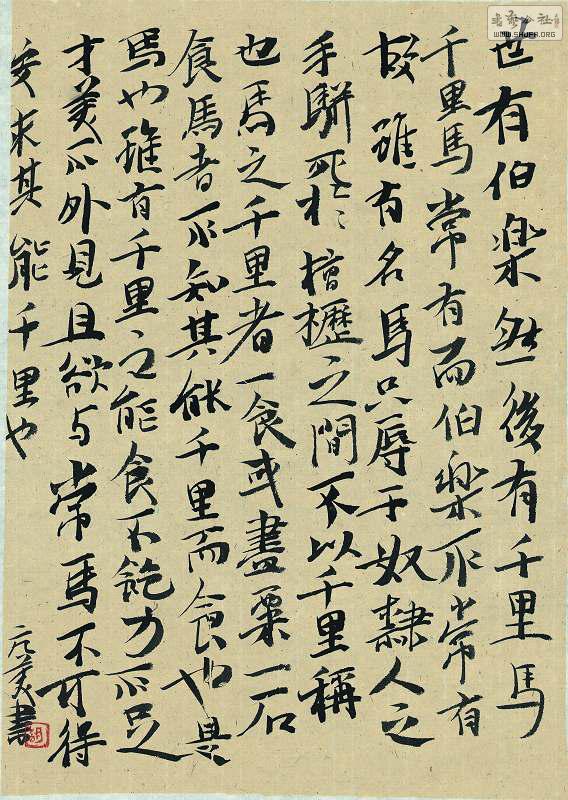 世有伯樂然後有千里馬
千里馬常有而伯樂不常有
故雖有名馬只辱于奴隸人之
手駢死於槽櫪之間不以千里稱
也馬之千里者一食或盡粟一石
食馬者不知其能千里而食也是
馬也雖有千里之能食不飽力不足
才美不外見且欲与常馬不可得
安求其能千里也
美書
WWW.SHUFA.ORG